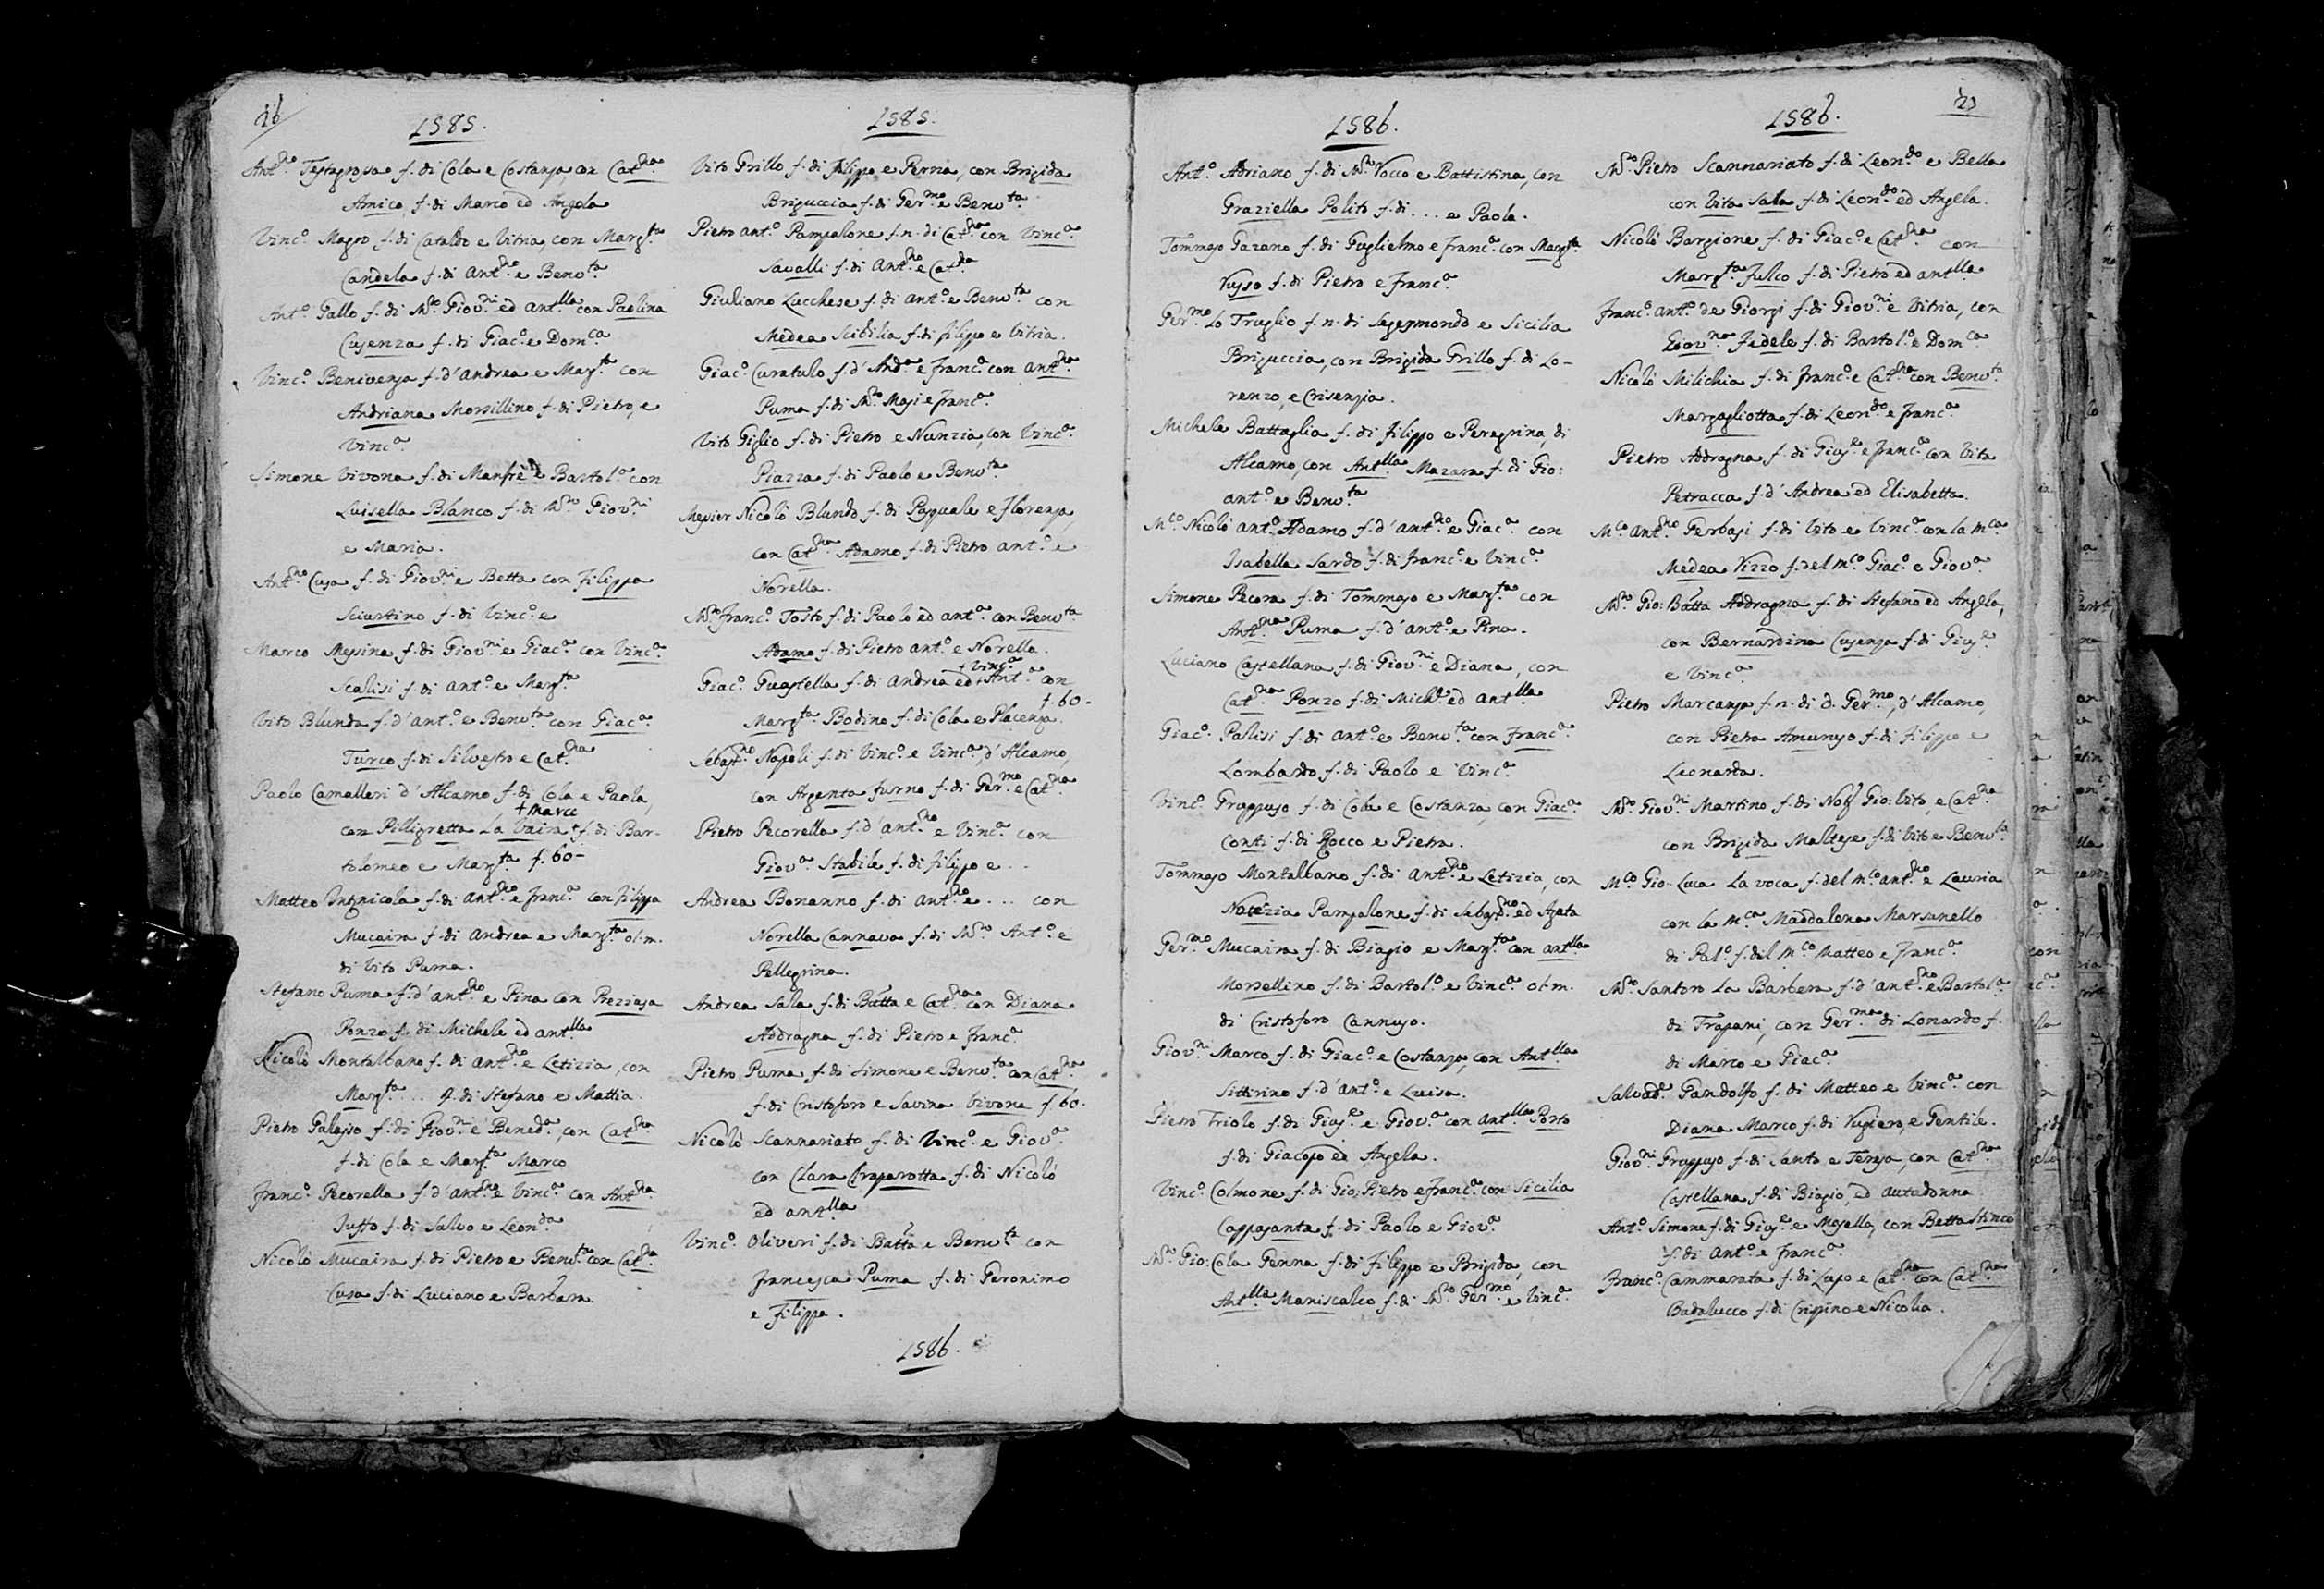 26
1585.
Ant.no Testagrossa f. di Cola e Costanza, con Cat.na
Amico, f. di Marco ed Angela
Vinc.o Magro f. di Cataldo e Vitria, con Marg.ta
Candela f. di Ant.no e Benv.ta
Ant.o Gallo f. di M.ro Giov.ni ed Ant.lla con Paolina
Cusenza f. di Giac.o e Dom.ca
Vinc.o Benivenga f. d'Andrea e Marg.ta con
Andriana Morsillino f. di Pietro, e
Vinc.a
Simone Vivona f. di Manfrè e Bartol.a con
Luisella Blanco f. di M.ro Giov.ni
e Maria.
Ant.no Cusa f. di Giov.ni e Betta con Filippa
Sciortino f. di Vinc.o e
Marco Messina f. di Giov.ni e Giac.a con Vinc.a
Scalisi f. di Ant.o e Marg.ta
Vito Blunda f. d'Ant.o e Benv.ta con Giac.a
Turco f. di Silvestro e Cat.na
Paolo Camalleri d'Alcamo f. di Cola e Paola,
+ Marce
con Pilligretta La Vaira + f. di Bar-
tolomeo e Marg.ta f. 60-
Matteo f. di Ant.no e Franc.a con Filippa
Mucaira f. di Andrea e Marg.ta ol. m.
di Vito Puma.
Stefano Puma f. d'Ant.no e Pina con Preziosa
Ponzo f. di Michele ed Ant.lla
Nicolò Montalbano f. di Ant.no e Letizia, con
Marg.ta ... q. di Stefano e Mattia.
Pietro Galasso f. di Giov.ni e Bened.a, con Cat.na
f. di Cola e Marg.ta Marco
Franc.o Pecorella f. d'Ant.no e Vinc.a con Ant.na
f. di Salvo e Leon.da
Nicolò Mucaira f. di Pietro e Benv.ta con Cat.na
Cusa f. di Luciano e Barbara.
1585.
Vito Grillo f. di Filippo e Perna, con Brigida
Briguccia f. di Ger.mo e Benv.ta
Pietro ant.o Pampalone f. n. di Cat.na con Vinc.a
Savalli f. di Ant.no e Cat.na
Giuliano Lucchese f. di Ant.o e Benv.ta con
Medea Scibilia f. di Filippo e Vitria.
Giac.o Curatulo f. d'And.a e Franc.a con Ant.na
Puma f. di M.ro Masi e Franc.a
Vito Giglio f. di Pietro e Nunzia, con Vinc.a
Piazza f. di Paolo e Benv.ta
Messer Nicolò Blundo f. di Pasquale e Florenza,
con Cat.na Adamo f. di Pietro ant.o e
Norella.
M.ro Franc.o Tosto f. di Paolo ed Ant.a con Benv.ta
Adamo f. di Pietro ant.o e Norella.
+ Vinc.a
Giac.o Guastella f. di Andrea ed + Ant.a con
f. 60-
Marg.ta Bodino f. di Cola e Placenza.
Sebast.no Napoli f. di Vinc.o e Vinc.a d'Alcamo,
con Argenta Furno f. di Ger.mo e Cat.na
Pietro Pecorella f. d'Ant.no e Vinc.a con
Giov.a Stabile f. di Filippo e ...
Andrea Bonanno f. di Ant.no e ... con
Norella Cannava f. di M.ro Ant.o e
Pellegrina.
Andrea Sala f. di Batta e Cat.na con Diana
Addragna f. di Pietro e Franc.a
Pietro Puma f. di Simone e Benv.ta con Cat.na
f. di Cristoforo e Savina Vivona f. 60.
Nicolò Scannariato f. di Vinc.o e Giov.a
con Clara Craparotta f. di Nicolò
ed Ant.lla
Vinc.o Oliveri f. di Batta e Benv.ta con
Francesca Puma f. di Geronimo
e Filippa.
1586.
1586.
Ant.o Adriano f. di M.ro Rocco e Battistina, con
Graziella Polito f. di ... e Paola.
Tommaso Gazano f. di Guglielmo e Franc.a con Marg.ta
Russo f. di Pietro e Franc.a
Ger.mo Lo Truglio f. n. di Segesmondo e Sicilia
Briguccia, con Brigida Grillo f. di Lo-
renzo, e Crisenzia.
Michele Battaglia f. di Filippo e Peregrina, di
Alcamo, con Ant.lla Mazara f. di Gio:
ant.o e Benv.ta
M.co Nicolò Ant.o Adamo f. d'Ant.no e Giac.a con
Isabella Sardo f. di Franc.o e Vinc.a
Simone Pecora f. di Tommaso e Marg.ta con
Ant.na Puma f. d'Ant.o e Pina.
Luciano Castellana f. di Giov.ni e Diana, con
Cat.na Ponzo f. di Mich.le ed Ant.lla
Giac.o Pallisi f. di Ant.o e Benv.ta con Franc.a
Lombardo f. di Paolo e Vinc.a
Vinc.o Gruppuso f. di Cola e Costanza, con Giac.a
Conti f. di Rocco e Pietra.
Tommaso Montalbano f. di Ant.no e Letizia, con
Pampalone f. di Sebast.no ed Agata
Ger.mo Mucaira f. di Biagio e Marg.ta con Ant.lla
Morsellino f. di Bartol.o e Vinc.a ol. m.
di Cristoforo Cannuso.
Giov.ni Marco f. di Giac.o e Costanza, con Ant.lla
Sittirino f. d'Ant.o e Luisa.
Pietro Triolo f. di Gius.e e Giov.a con Ant.lla Porto
f. di Giacopo ed Angela.
Vinc.o Colmone f. di Gio: Pietro e Franc.a con Sicilia
Cappasanta f. di Paolo e Giov.a
M.ro Gio: Cola Genna f. di Filippo e Brigida, con
Ant.lla Maniscalco f. di M.ro Ger.mo e Vinc.a
1586.
M.ro Pietro Scannariato f. di Leon.do e Bella
con Vita Sala f. di Leon.do ed Angela.
Nicolò Bargione f. di Giac.o e Cat.na con
Marg.ta Fusco f. di Pietro ed Ant.lla
Franc.o Ant.o de Giorgi f. di Giov.ni e Vitria, con
Giov.na Fedele f. di Bartol.o e Dom.ca
Nicolò Milichia f. di Franc.o e Cat.na con Benv.ta
Margagliotta f. di Leon.do e Franc.a
Pietro Addragna f. di Gius.e e Franc.a con Vita
Petracca f. d'Andrea ed Elisabetta.
M.co Ant.no Gerbasi f. di Vito e Vinc.a con la M.ca
Medea Rizzo f. del M.co Giac.o e Giov.a
M.ro Gio: Batta Addragna f. di Stefano ed Angela,
con Bernardina Cusenza f. di Gius.e
e Vinc.a
Pietro Marcanza f. n. di d. Ger.mo, d'Alcamo,
con Pietra Amuruso f. di Filippo e
Leonarda.
M.ro Giov.ni Martino f. di Not.r Gio: Vito, e Cat.na
con Brigida Maltese f. di Vito e Benv.ta
M.co Gio: Luca La Voca f. del M.co Ant.no e Lauria
con la M.ca Maddalena Marsanello
di Pal.o f. del M.co Matteo e Franc.a
M.ro Santoro La Barbera f. d'Ant.no e Bartol.a
di Trapani, con Ger.ma di Lonardo f.
di Marco e Giac.a
Salvad.e Gandolfo f. di Matteo e Vinc.a con
Diana Marco f. di Rugiero, e Gentile.
Giov.ni Gruppuso f. di Santo e Tenza, con Cat.na
Castellana f. di Biagio, ed Autadonna
Ant.o Simone f. di Gius.e e Masella, con Betta Stinco
f. di Ant.o e Franc.a
Franc.o Cammarata f. di Lupo e Cat.na con Cat.na
Badalucco f. di Crispino e Nicolia.